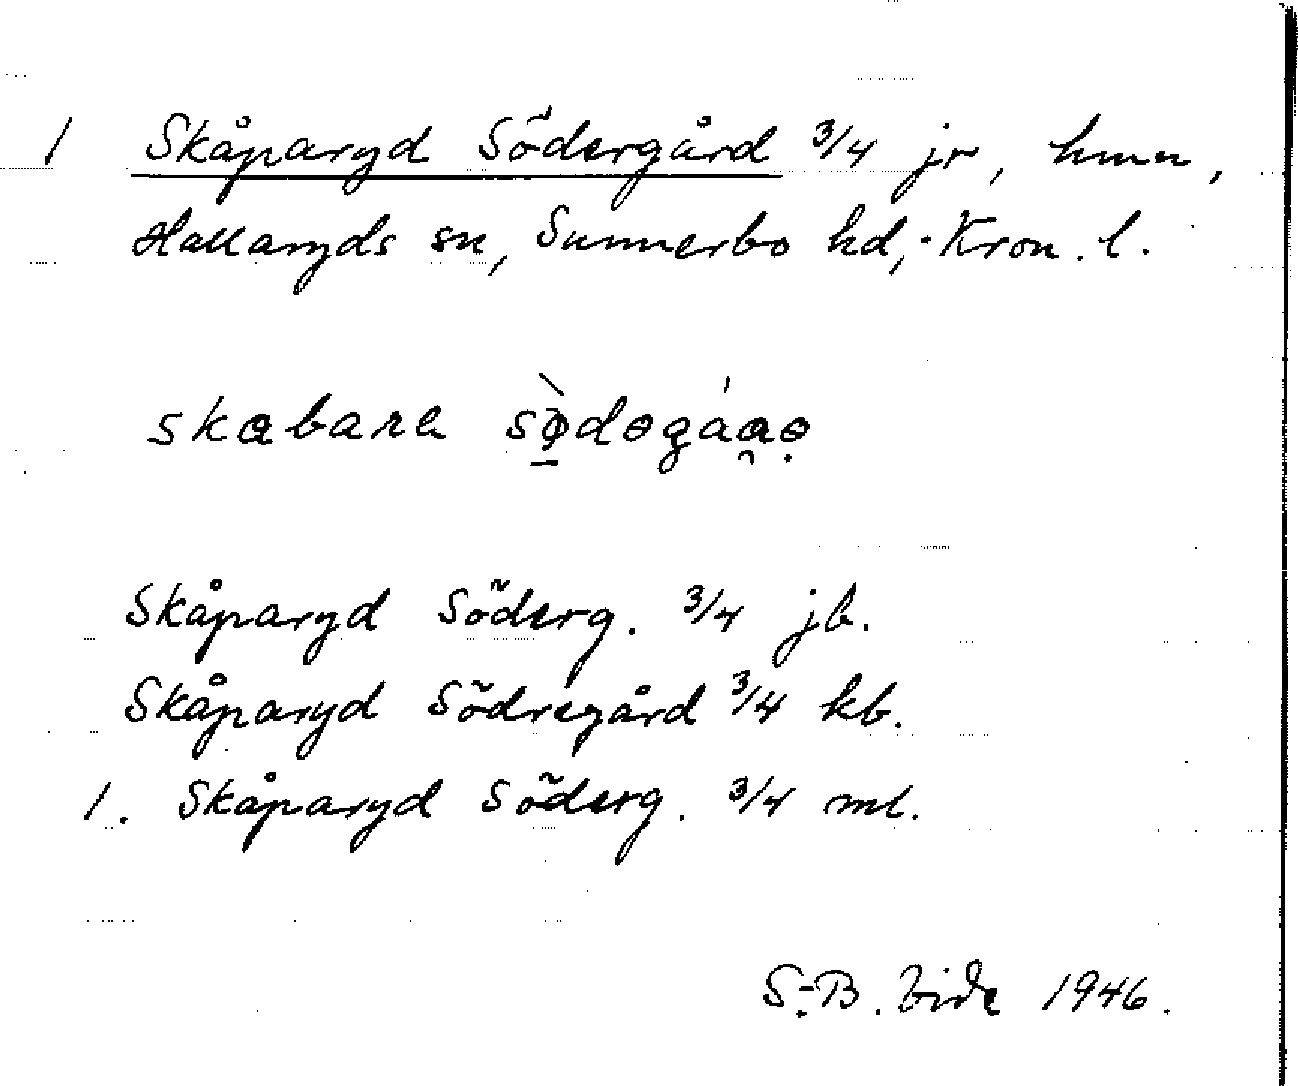 1 Skåparyd Södergård 3/4 jr, hmn,
Hallaryds sn, Sunnerbo hd, Kron. l.
Skåparyd Söderg. 3/4 jb.
Skåparyd Södregård 3/4 kb.
1. Skåparyd Söderg. 3/4 ml.
S.-B. 1946.